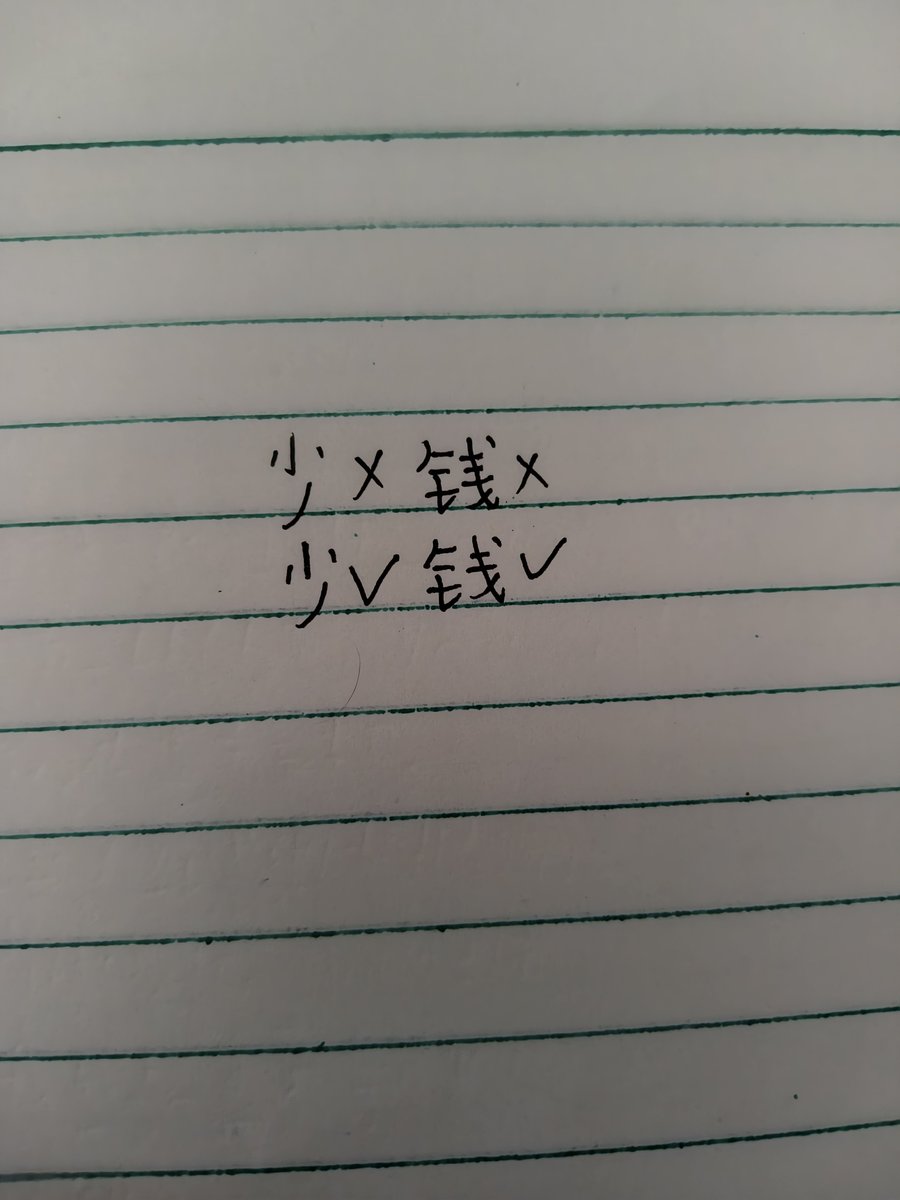 少×钱×
少✓钱✓